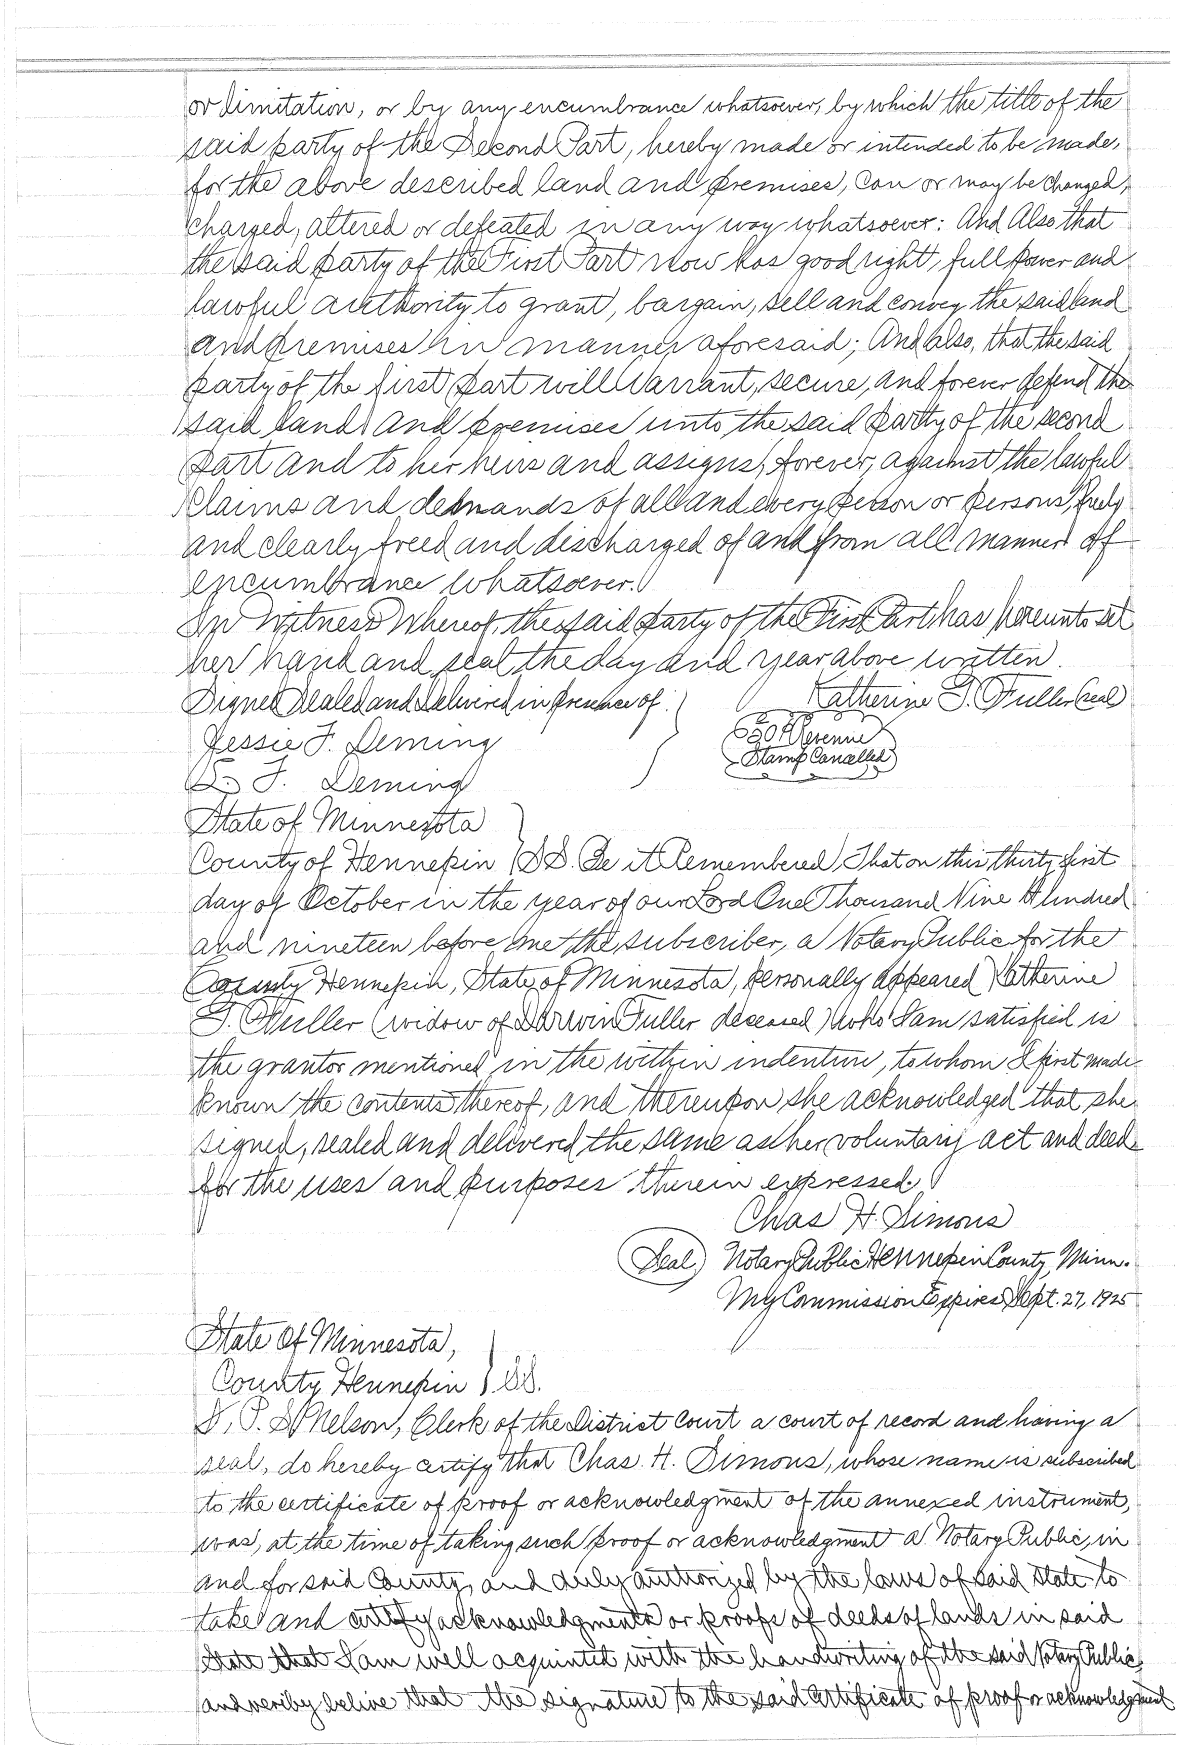 or limitation, or by any encumbrance whatsoever, by which the title of the
said party of the Second Part, hereby made or intended to be made,
for the above described land and premises, can or may be changed,
charged, altered or defeated in any way whatsoever: And Also that
the said party of the First Part now has good right, full power and
lawful authority to grant, bargain, sell and convey the said land
and premises in manner aforesaid; And also, that the said
party of the first part will Warrant, secure, and forever defend the
said land and premises unto the said party of the second
part and to her heirs and assigns, forever, against the lawful
claims and demands of all and every person or persons, freely
and clearly freed and discharged of and from all manner of
encumbrance whatsoever.
In Witness Whereof, the said party of the First Part has hereunto set
her hand and seal the day and year above written.
Signed Sealed and Delivered in presence of
Katherine G. Fuller (seal)
Jessie F. Deming
50¢ Revenue
Stamp Cancelled
F. Deming
State of Minnesota
County of Hennepin } SS. Be it Remembered, That on this thirty first
day of October in the year of our Lord One Thousand Nine Hundred
and nineteen before me the subscriber, a Notary Public for the
County Hennepin, State of Minnesota, personally appeared Katherine
G. Fuller (widow of Darwin Fuller deceased) who I am satisfied is
the grantor mentioned in the within indenture, to whom I first made
known the contents thereof, and thereupon she acknowledged that she
signed, sealed and delivered the same as her voluntary act and deed
for the uses and purposes therein expressed.
Chas H. Simons
(Seal) Notary Public Hennepin County, Minn.
My Commission Expires Sept. 27, 1925
State of Minnesota,
County Hennepin } SS.
I, P. S. Nelson, Clerk of the District Court a court of record and having a
seal, do hereby certify that Chas. H. Simons, whose name is subscribed
to the certificate of proof or acknowledgment of the annexed instrument,
was, at the time of taking such proof or acknowledgment a Notary Public, in
and for said County, and duly authorized by the laws of said State to
take and certify acknowledgments or proofs of deeds of lands in said
State that I am well acquinted with the handwriting of the said Notary Public,
and veriby belive that the signature to the said certificate of proof or acknowledgment